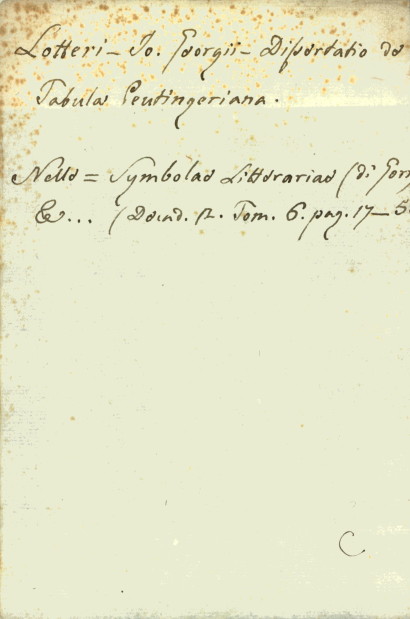 Lotteri - Jo. Georgii - Dissertatio de
Tabula Peutingeriana.
Nelle = Symbolae Litterariae (di Gor
&... (Decad. 2. Tom. 6. pag. 17-5
C